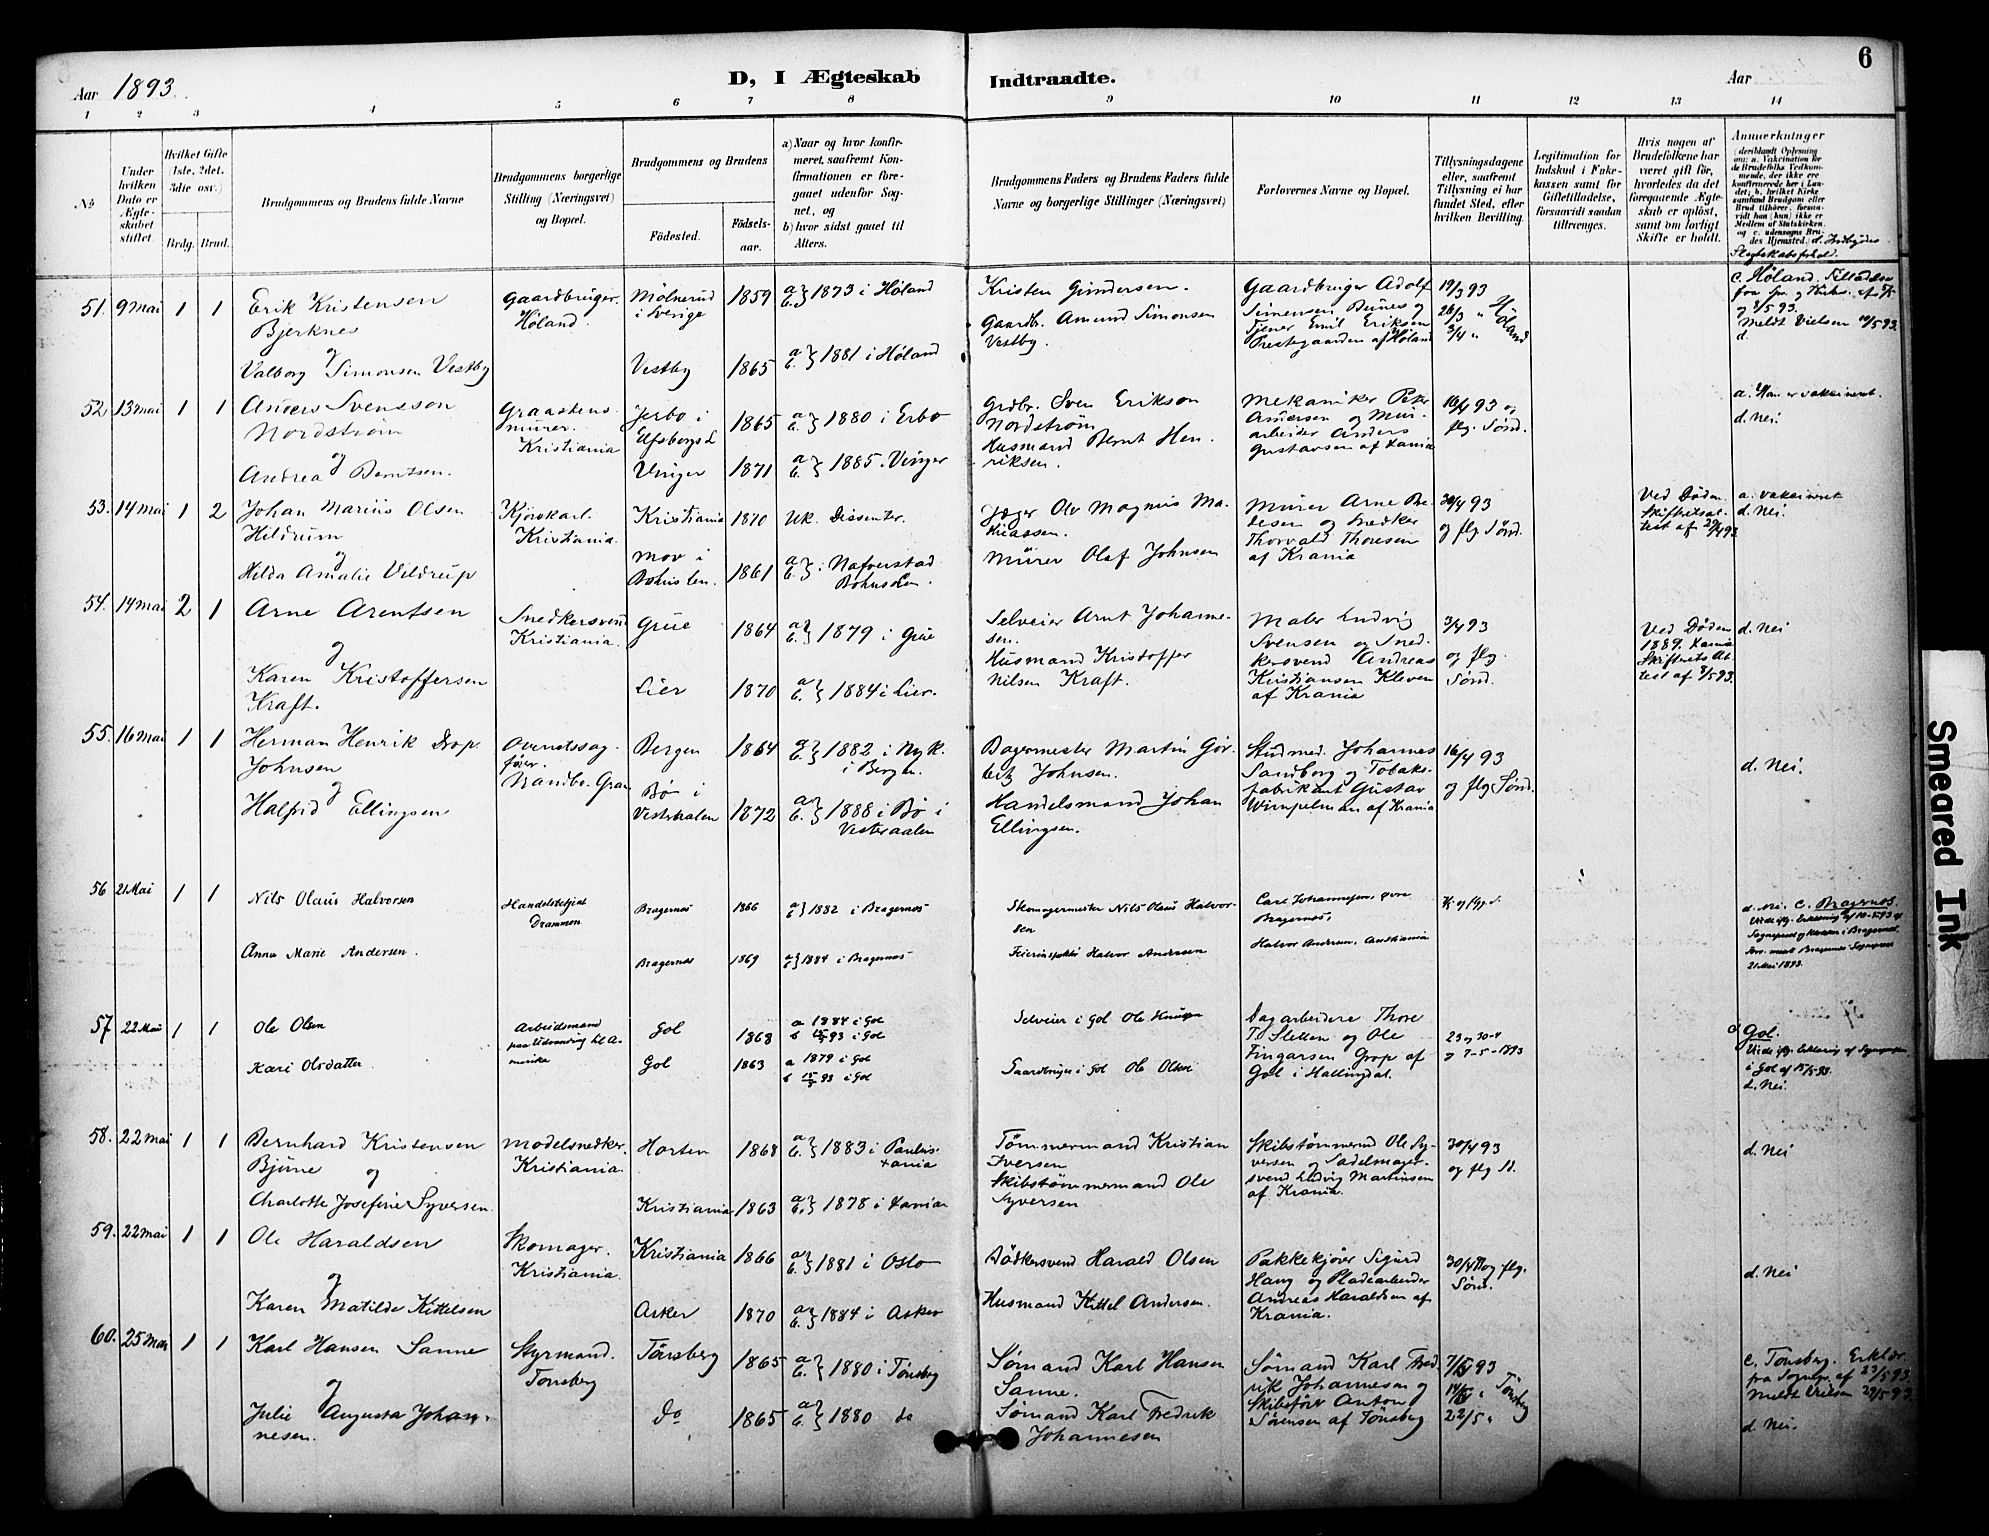 6
Aar 1893.
D, I Ægteskab Indtraadte.
Aar
1 2 3 4 5 6 7 8 9 10 11 12 13 14
No
Under hvilken Dato er Ægteskabet stiftet.
Hvilket Gifte (1ste, 2det, 3die osv.)
Brdg. Brud.
Brudgommens og Brudens fulde Navne
Brudgommens borgerlige Stilling (Næringsvei) og Bopæl.
Brudgommens og Brudens
Fødested. Fødsels-aar.
a) Naar og hvor konfirmeret, saafremt Konfirmationen er foregaaet udenfor Sognet, og
b) hvor sidst gaaet til Alters.
Brudgommens Faders og Brudens Faders fulde Navne og borgerlige Stillinger (Næringsvei)
Forlovernes Navne og Bopæl.
Tillysningsdagene eller, saafremt Tillysning ei har fundet Sted, efter hvilken Bevilling.
Legitimation for Indskud i Enkekassen samt for Giftetilladelse, forsaavidt saadan tiltrænges.
Hvis nogen af Brudefolkene har været gift før, hvorledes da det foregaaende Ægteskab er opløst, samt om lovligt Skifte er holdt.
Anmerkninger
51. 9 Mai 1 1 Erik Kristensen Bjerknes
Gaardbruger. Høland.
i Sverige 1859 a. b. } 1873 i Høland
Kristen Gundersen.
Gaardbruger Adolf Simensen
Tjener Emil Eriksen Prestegaarden af Høland
19/3 93 26/3 " 3/4 " Høland
c. Høland.
og Valborg Simonsen Vestby
Vestby 1865 a. b. } 1881 i Høland
Gaardbr. Amund Simonsen Vestby.
d.
52. 13 Mai 1 1 Anders Svensson Nordstrøm
Graastensmurer. Kristiania
Jerbo i Elfsborgs L 1865 a. b. } 1880 i Erbo
Grdbr. Sven Erikson Nordstrøm
Mekaniker Peter Andersen og Murarbeider Anders Gustavsen af Xania
16/4 93 og flg. Sønd.
a. Han er vakcineret.
d. Nei.
og Andrea Berntsen.
Vinger 1871 a. b. } 1885. Vinger
Husmand Bernt Henriksen.
53. 14 Mai 1 2 Johan Marius Olsen Hildrum
Kjørekarl. Kristiania.
Kristiania 1870 Uk. Dissenter.
Jæger Ole Magnus Mathiassen.
Murer Arne
og Snedker Thorvald Thoresen af Krania
30/4 93 og flg Sønd.
Ved Døden.
a. vakcineret
d. Nei.
og Hilda Amalie Vildrup
Mov i Bohuslen. 1861 a. b. } i Nafverstad Bohuslen.
Murer Olaf Johnsen
54. 14 Mai 2 1 Arne Arentsen
Snedkersvend Kristiania.
Grue 1864 a. b. } 1879 i Grue
Selveier Arnt Johannesen.
Maler Ludvig Svensen og Snedkersvend Andreas Kristiansen Kleven af Krania
og flg. Sønd.
Ved Døden 1889. Xania Skifterets Attest af 8/5 93.
d. Nei
og Karen Kristoffersen Kraft.
Lier 1870 a. b. } 1884 i Lier.
Husmand Kristoffer Nilsen Kraft.
55. 16 Mai 1 1 Herman Henrik Drop Johnsen
Overretssagfører. Brandbo. Gran
Bergen 1864 a. b. } 1882 i Nyk. i Bergen.
Bagermester Martin Gørbitz Johnsen.
Stud med. Johannes Sandborg og Tobaksfabrikant Gustav Wimpelman af Krania
16/4 93 og flg Sønd.
d. Nei.
og Halfrid Ellingsen
Bø i Vesteraalen 1872 a. b. } 1888 i Bø i Vesteraalen
Handelsmand Johan Ellingsen.
56 21 Mai 1 1 Nils Olaus Halvorsen
Handelsbetjent Drammen
Bragernes 1866 a/b } 1882 i Bragernes
Skomagermester Nils Olaus Halvorsen
Carl Johannesen, øvre Bragernes,
d. Nei. c. Bragernes.
21 Mai 1893.
Anna Marie Andersen.
Bragernes 1869 a/b } 1884 i Bragernes
Halvor Andersen
Halvor Andersen, Kristiania
57 22 Mai 1 1 Ole Olsen
Arbeidsmand paa Udvandring til Amerika
Gol 1868 a 1884 i Gol b 15/5 93 i Gol
Selveier i Gol Ole Knudsen
Dagarbeidere Thore T. Sletten og Ole Fingarsen Grop af Gol i Hallingdal.
23 og 30-4 og 7-5-1893
c Gol.
Viede iflg. Erklæring af Sognepr. i Gol af 15/5 93.
d. Nei.
Kari Olsdatter
Gol 1863 a 1879 i Gol b 15/5 93 i Gol
Gaardbruger i Gol Ole Olsen
58. 22 Mai 1 1 Bernhard Kristensen Bjune
Modelsnedker. Kristiania.
Horten 1868 a. b. } 1883 i Paulus Xania
Tømmermand Kristian Iversen
Skibstømmermd Ole Syversen og Sadelmagersvend Ludvig Martinsen af Krania.
30/4 93 og flg S.
d. Nei
og Charlotte Josefine Syversen.
Kristiania 1863 a. b. } 1878 i Xania
Skibstømmermand Ole Syversen
59. 22 Mai 1 1 Ole Haraldsen
Skomager. Kristiania.
Kristiania 1866 a. b. } 1881 i Oslo
Bødkersvend Harald Olsen
Pakkekjører Sigurd Haug og Pladearbeider Andreas Haraldsen af Krania.
30/4 og flg. Sønd.
d. Nei
og Karen Matilde Kittelsen
Asker 1870 a. b. } 1884 i Asker
Husmand Kittel Andersen.
60. 25 Mai 1 1 Karl Hansen Sanne
Styrmand. Tønsberg
Tønsberg 1865 a. b. } 1880 i Tønsberg
Sømand Karl Hansen Sanne.
Sømand Karl Fredrik Johannesen og Skibsfører Anton Sørensen af Tønsberg
7/5 93 14/5 " 22/5 " Tønsberg
c. Tønsberg. Erklær. fra Sognepr. af 23/5 93.
Meldt Vielsen 29/5 93
d. Nei.
og Julie Augusta Johannesen.
do 1865 a. b. } 1880 do
Sømand Karl Fredrik Johannesen
Smeared Ink